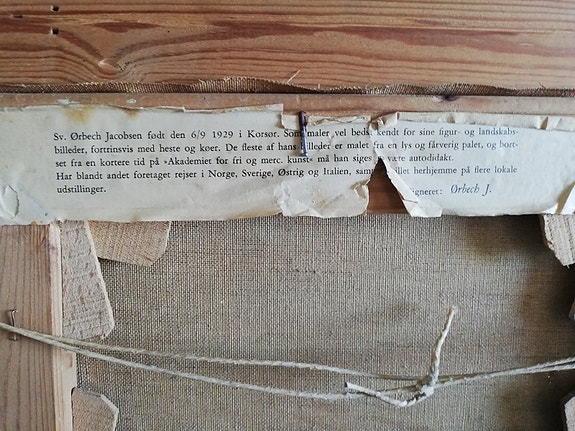 Sv. Ørbech Jacobsen født den 6/9 1929 i Korsør. Som maler vel bedst kendt for sine figur- og landskabs-
billeder, fortrinsvis med heste og køer. De fleste af hans billeder er malet fra en lys og fårverig palet, og bort-
set fra en kortere tid på »Akademiet for fri og merc. kunst« må han siges være autodidakt.
Har blandt andet foretaget rejser i Norge, Sverige, Østrig og Italien, samt illet herhjemme på flere lokale
udstillinger. igneret: Ørbech J.